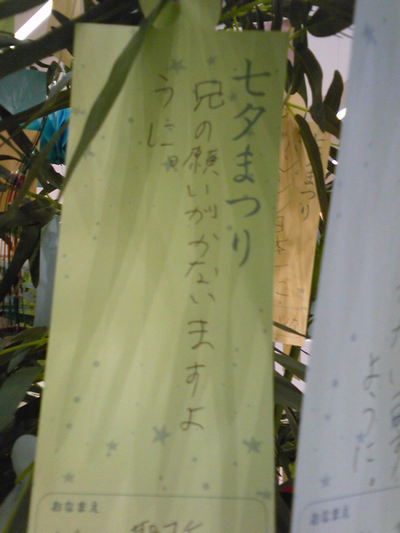 七夕まつり
兄の願いがかないますよ
うに
おなまえ
まつり
ように。
おなまえ